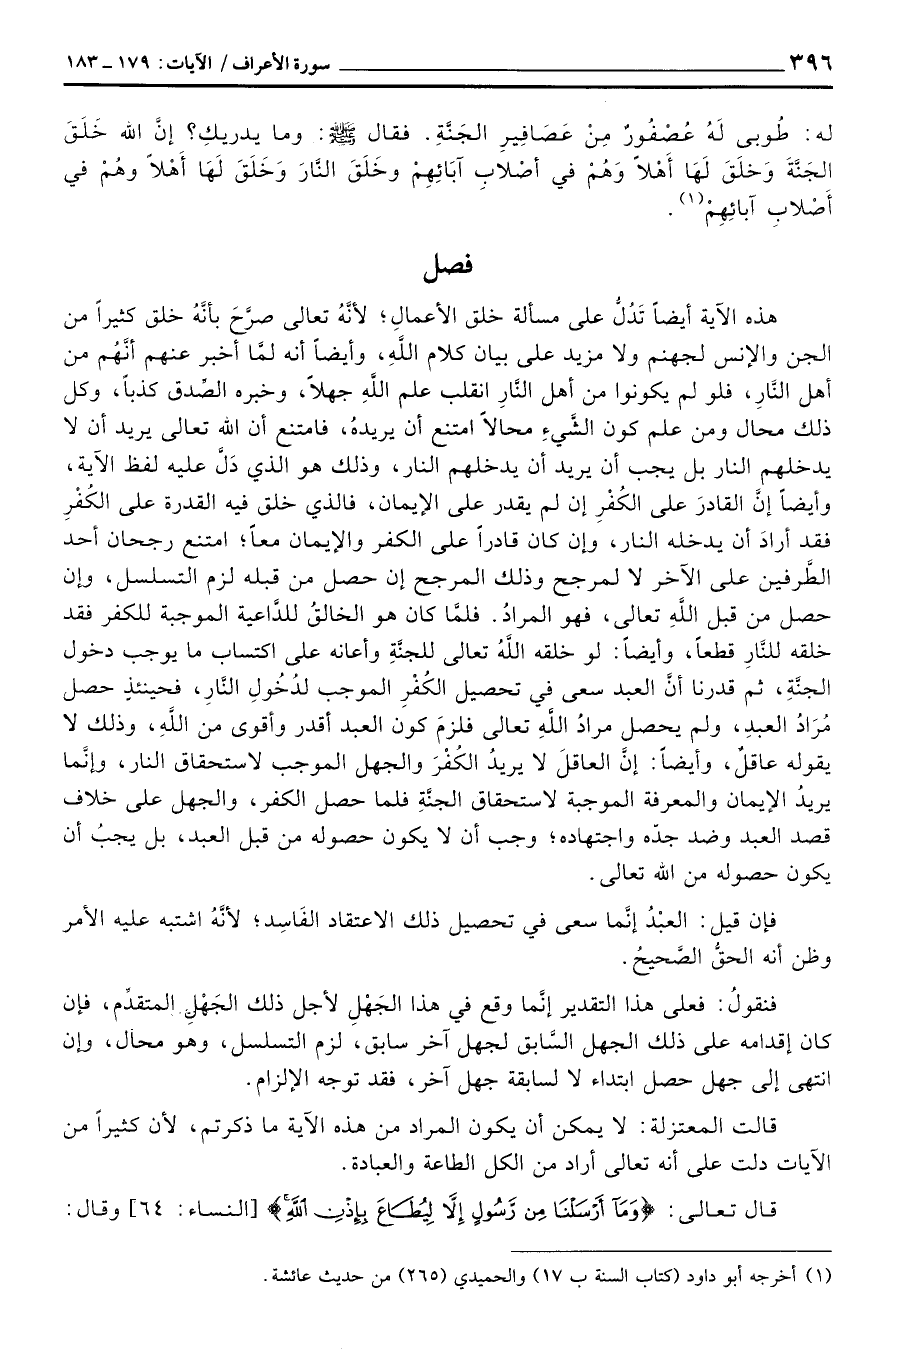 ٣٩٦ سورة الأعراف/ الآيات: ١٧٩ ـ ١٨٣
له: طُوبى لَهُ عُصْفُورٌ مِنْ عَصَافِيرِ الجَنَّةِ. فقال ﷺ: وما يدريكِ؟ إنَّ الله خَلَقَ
الجَنَّةَ وَخلَقَ لَهَا أَهْلاً وَهُمْ في أصْلابِ آبَائِهِمْ وخَلَقَ النَّارَ وَخَلَقَ لَهَا أهْلاً وهُمْ في
أَصْلابِ آبائِهِمْ(١).
فصل
هذه الآية أيضاً تَدُلُّ على مسألة خلق الأعمالِ؛ لأنَّهُ تعالى صرَّحَ بأنَّهُ خلق كثيراً من
الجن والإنس لجهنم ولا مزيد على بيان كلام اللَّهِ، وأيضاً أنه لمَّا أخبر عنهم أنَّهُم من
أهل النَّارِ، فلو لم يكونوا من أهل النَّارِ انقلب علم اللَّهِ جهلاً، وخبره الصِّدق كذباً، وكل
ذلك محال ومن علم كون الشَّيءِ محالاً امتنع أن يريدهُ، فامتنع أن الله تعالى يريد أن لا
يدخلهم النار بل يجب أن يريد أن يدخلهم النار، وذلك هو الذي دَلَّ عليه لفظ الآية،
وأيضاً إنَّ القادرَ على الكُفْرِ إن لم يقدر على الإيمان، فالذي خلق فيه القدرة على الكُفْرِ
فقد أرادَ أن يدخله النار، وإن كان قادراً على الكفر والإيمان معاً؛ امتنع رجحان أحد
الطَّرفين على الآخر لا لمرجح وذلك المرجح إن حصل من قبله لزم التسلسل، وإن
حصل من قبل اللَّهِ تعالى، فهو المرادُ. فلمَّا كان هو الخالقُ للدَّاعية الموجبة للكفر فقد
خلقه للنَّارِ قطعاً، وأيضاً: لو خلقه اللَّهُ تعالى للجنَّةِ وأعانه على اكتساب ما يوجب دخول
الجنَّةِ، ثم قدرنا أنَّ العبد سعى في تحصيل الكُفْرِ الموجب لدُخُولِ النَّارِ، فحينئذٍ حصل
مُرَادُ العبدِ، ولم يحصل مرادُ اللَّهِ تعالى فلزمَ كون العبد أقدر وأقوى من اللَّهِ، وذلك لا
يقوله عاقلٌ، وأيضاً: إنَّ العاقلَ لا يريدُ الكُفْرَ والجهل الموجب لاستحقاق النار، وإنَّما
يريدُ الإيمان والمعرفة الموجبة لاستحقاق الجنَّةِ فلما حصل الكفر، والجهل على خلاف
قصد العبد وضد جدّه واجتهاده؛ وجب أن لا يكون حصوله من قبل العبد، بل يجبُ أن
يكون حصوله من الله تعالى.
فإن قيل: العبْدُ إنَّما سعى في تحصيل ذلك الاعتقاد الفَاسِد؛ لأنَّهُ اشتبه عليه الأمر
وظن أنه الحقُّ الصَّحيحُ.
فنقولُ: فعلى هذا التقدير إنَّما وقع في هذا الجَهْلِ لأجل ذلك الجَهْلِ المتقدِّم، فإن
كان إقدامه على ذلك الجهل السَّابق لجهل آخر سابق، لزم التسلسل، وهو محال، وإن
انتهى إلى جهل حصل ابتداء لا لسابقة جهل آخر، فقد توجه الإلزام.
قالت المعتزلة: لا يمكن أن يكون المراد من هذه الآية ما ذكرتم، لأن كثيراً من
الآيات دلت على أنه تعالى أراد من الكل الطاعة والعبادة.
قال تعالى: ﴿وَمَآ أَرْسَلْنَا مِن رَّسُولٍ إِلَّا لِيُطَاعَ بِإِذْنِ ٱللَّهِۚ﴾ [النساء: ٦٤] وقال:
(١) أخرجه أبو داود (كتاب السنة ب ١٧) والحميدي (٢٦٥) من حديث عائشة.